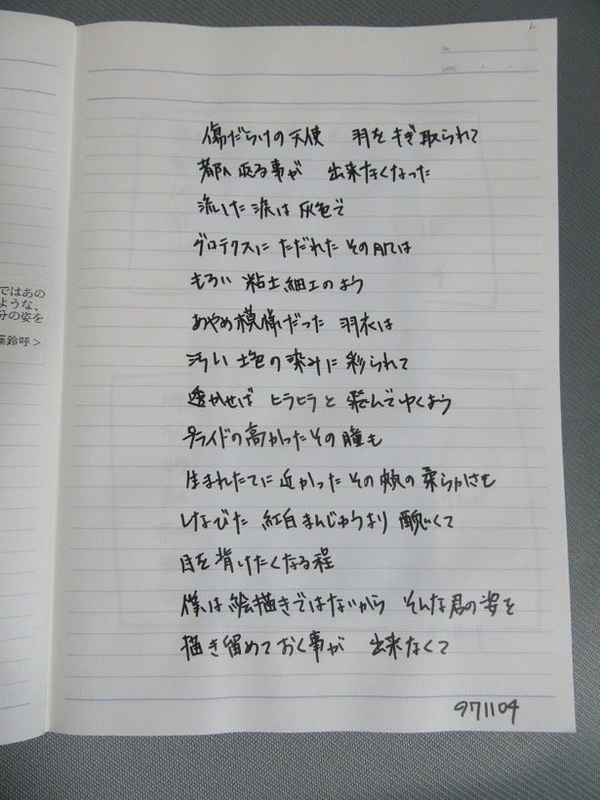 ではあの
ような、
分の姿を
葉鈴呼>
No.
DATE
傷だらけの天使　羽をもぎ取られて
都へ戻る事が　出来なくなった
流した涙は灰色で
グロテクスに ただれた その肌は
もろい 粘土細工のよう
あやめ模様だった 羽衣は
汚い 土色の染みに彩られて
透かせば ヒラヒラと 飛んでゆくよう
プライドの高かったその瞳も
生まれたてに近かった その頬の柔らかさも
しなびた 紅白まんじゅうより 醜くて
目を背けたくなる程
僕は絵描きではないから そんな君の姿を
描き留めておく事が　出来なくて
971104